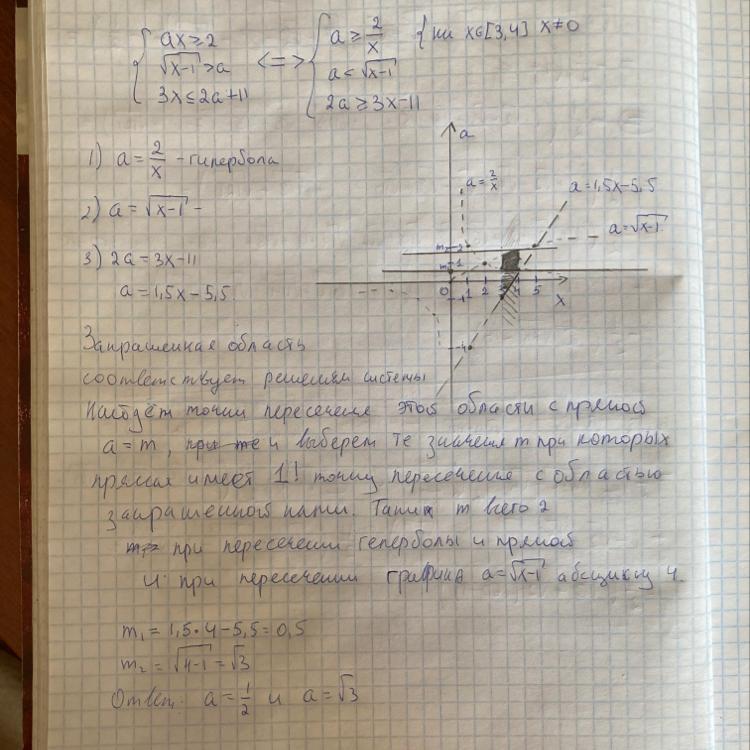 ax ≥ 2
√x-1 > a
3x ≤ 2a+11
<=>
a ≥ 2/x
a < √x-1
2a ≥ 3x-11
x∈[3,4] x≠0
1) a = 2/x - гипербола
2) a = √x-1 -
3) 2a = 3x-11
a = 1,5x-5,5
a
a = 2/x
a = 1,5x-5,5
a = √x-1
2
1
0
1 2 3 4 5
x
-4
Закрашенная область
соответствует решениям системы
Найдём точки пересечения этой области с прямой
a = m, при те и выберем те значения m при которых
прямая имеет 1! точку пересечения с областью
закрашенной нами. Таких m всего 2
при пересечении геперболы и прямой
И при пересечении графика a=√x-1 абсциссу 4.
m₁ = 1,5·4-5,5=0,5
m₂ = √4-1 = √3
Ответ: a = 1/2 и a = √3